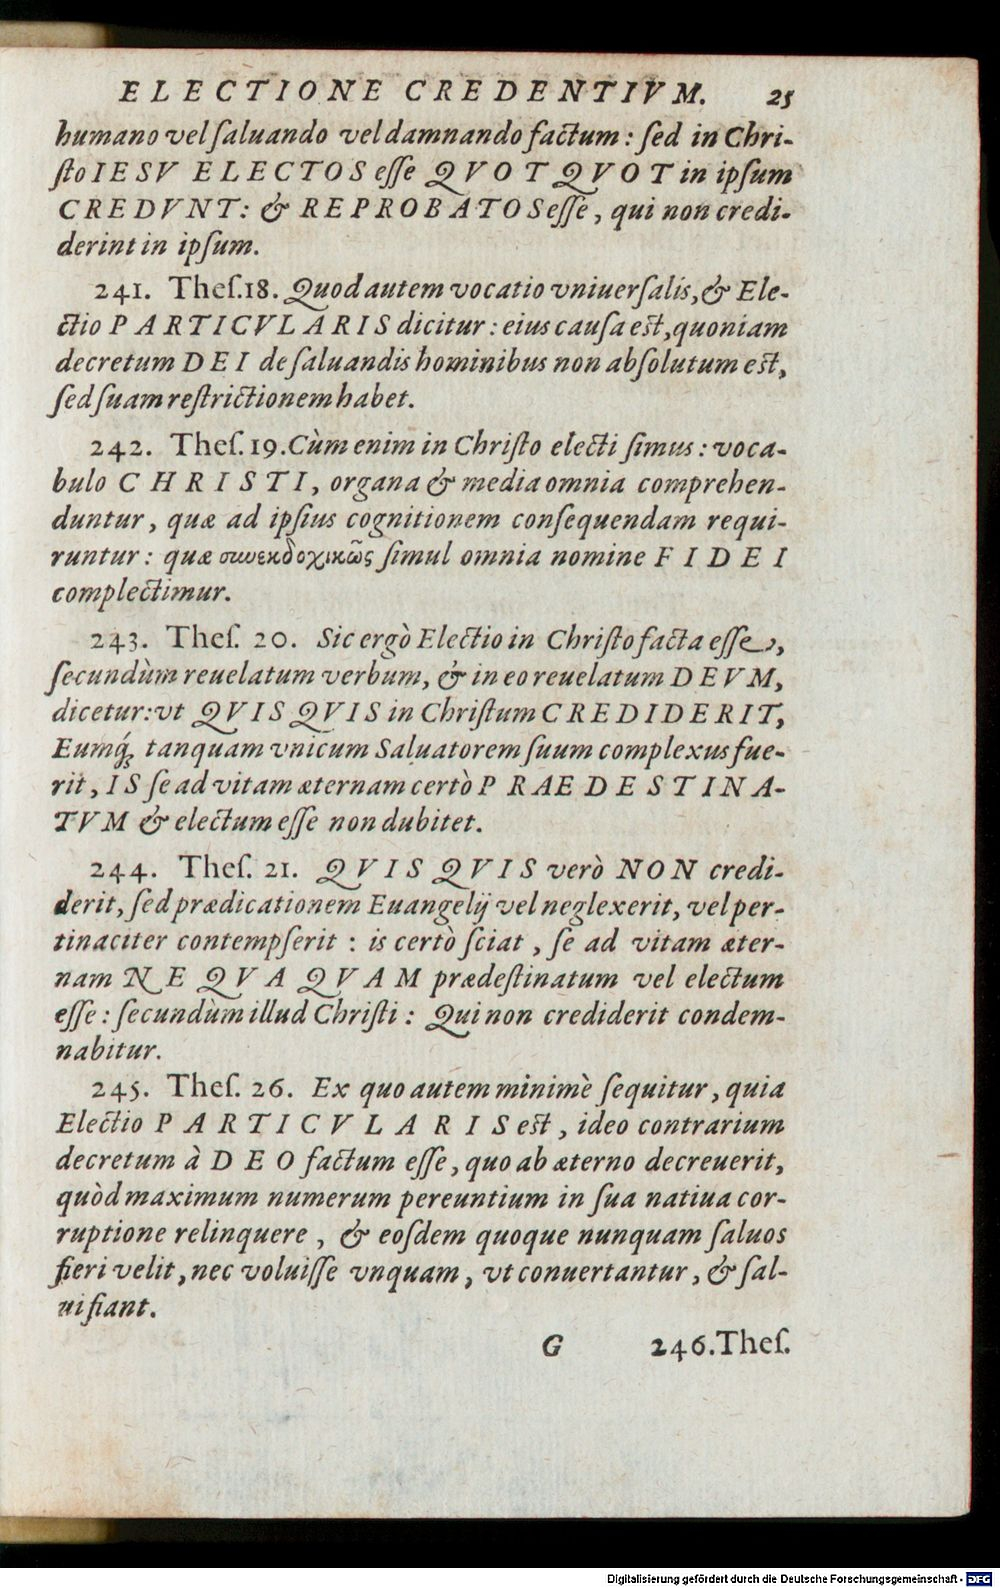 ELECTIONE CREDENTIVM. 25
humano vel ſaluando vel damnando factum: ſed in Chri-
ſto IESV ELECTOS eſſe QVOTQVOT in ipſum
CREDVNT: & REPROBATOS eſſe, qui non credi-
derint in ipſum.
241. Theſ. 18. Quod autem vocatio vniuerſalis, & Ele-
ctio PARTICVLARIS dicitur: eius cauſa eſt, quoniam
decretum DEI de ſaluandis hominibus non abſolutum eſt,
ſed ſuam reſtrictionem habet.
242. Theſ. 19. Cùm enim in Chriſto electi ſimus: voca-
bulo CHRISTI, organa & media omnia comprehen-
duntur, quæ ad ipſius cognitionem conſequendam requi-
runtur: quæ συνεκδοχικῶς ſimul omnia nomine FIDEI
complectimur.
243. Theſ. 20. Sic ergò Electio in Chriſto facta eſſe,
ſecundùm reuelatum verbum, & in eo reuelatum DEVM,
dicetur: vt QVISQVIS in Chriſtum CREDIDERIT,
Eumq́ꝫ tanquam vnicum Saluatorem ſuum complexus fue-
rit, IS ſe ad vitam æternam certò PRAEDESTINA-
TVM & electum eſſe non dubitet.
244. Theſ. 21. QVISQVIS verò NON credi-
derit, ſed prædicationem Euangelij vel neglexerit, vel per-
tinaciter contempſerit: is certò ſciat, ſe ad vitam æter-
nam NEQVAQVAM prædeſtinatum vel electum
eſſe: ſecundùm illud Chriſti: Qui non crediderit condem-
nabitur.
245. Theſ. 26. Ex quo autem minimè ſequitur, quia
Electio PARTICVLARIS eſt, ideo contrarium
decretum à DEO factum eſſe, quo ab æterno decreuerit,
quòd maximum numerum pereuntium in ſua natiua cor-
ruptione relinquere, & eoſdem quoque nunquam ſaluos
fieri velit, nec voluiſſe vnquam, vt conuertantur, & ſal-
ui fiant.
G 246. Theſ.
Digitalisierung gefördert durch die Deutsche Forschungsgemeinschaft - DFG